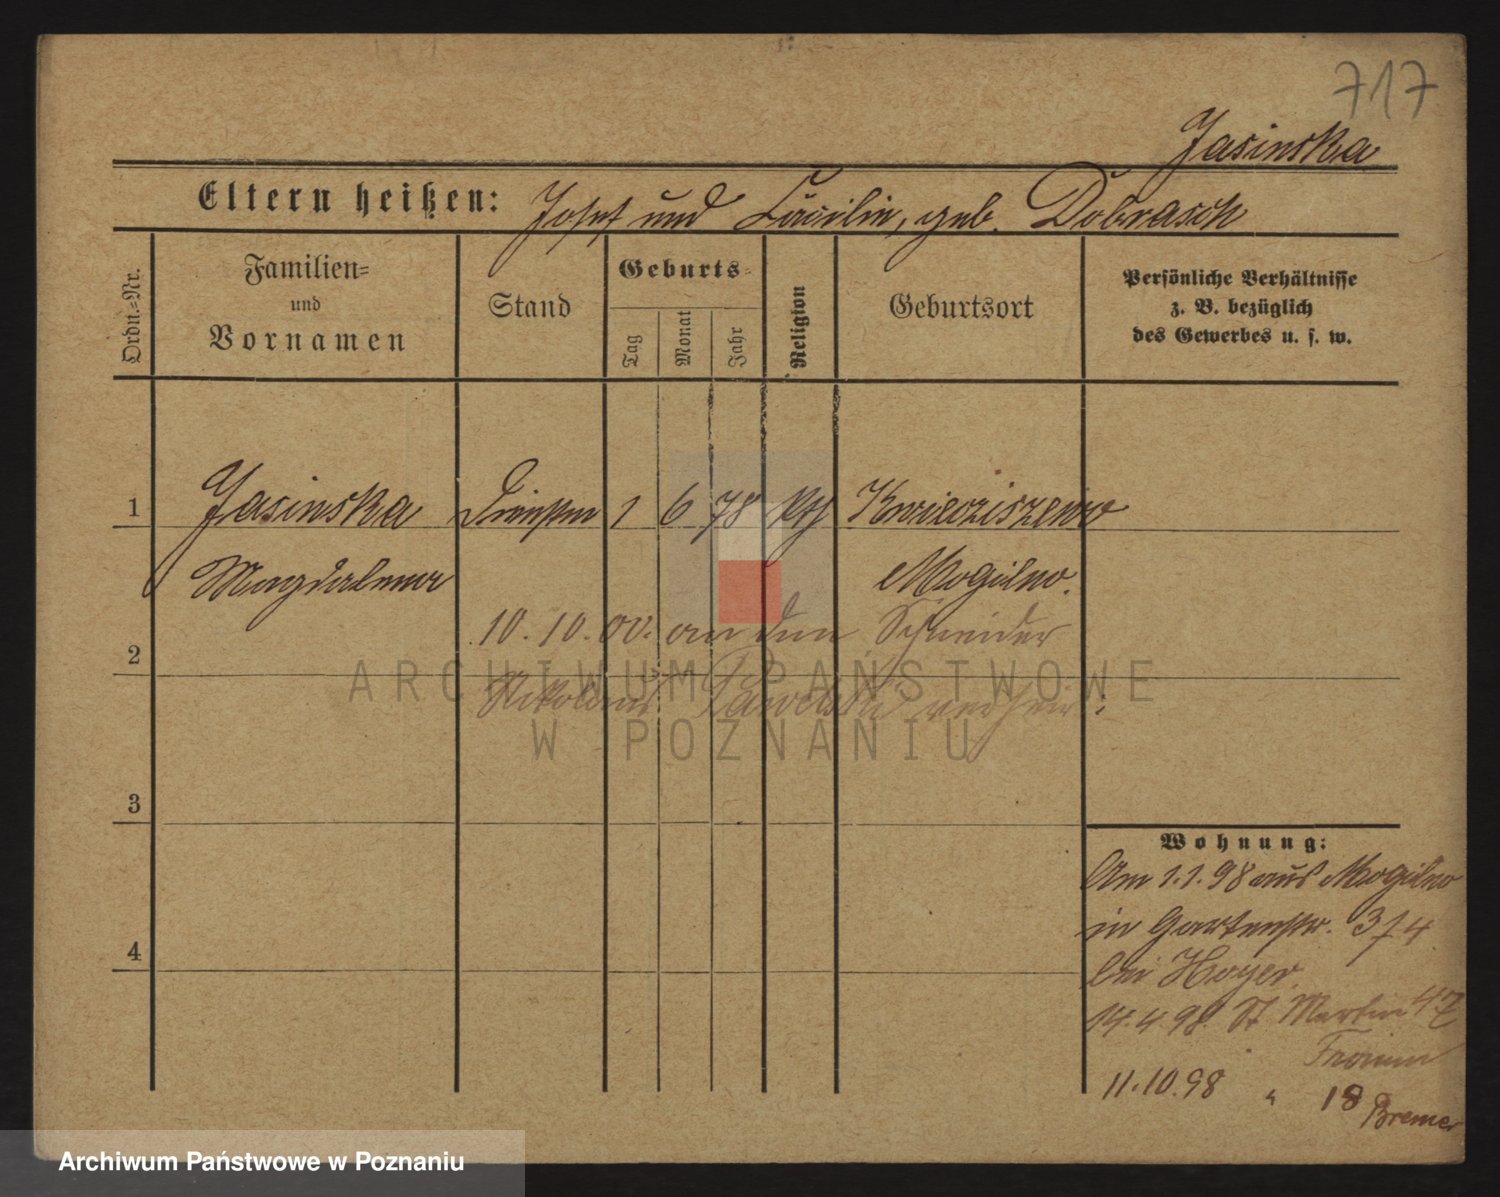 717
Jasinska
Eltern heißen: Josef und Cäcilie, geb. Dobrasch
Ordn.-Nr.
Familien-
und
Vornamen
Stand
Geburts-
Tag
Monat
Jahr
Religion
Geburtsort
Persönliche Verhältnisse
z. B. bezüglich
des Gewerbes u. s. w.
1 Jasinska 1 6 78 kth Kwieciszewo
Magdalena Mogilno.
10.10.00. an den Schneider
2
Nikolaus verheir.
3
4
Wohnung:
Am 1.1.98 aus Mogilno
in Gartenstr. 3/4
bei Hoyer.
14.4.98. St. Martin 47
Fromm
11.10.98 " 18
Bremer
ARCHIWUM PAŃSTWOWE
W POZNANIU
Archiwum Państwowe w Poznaniu